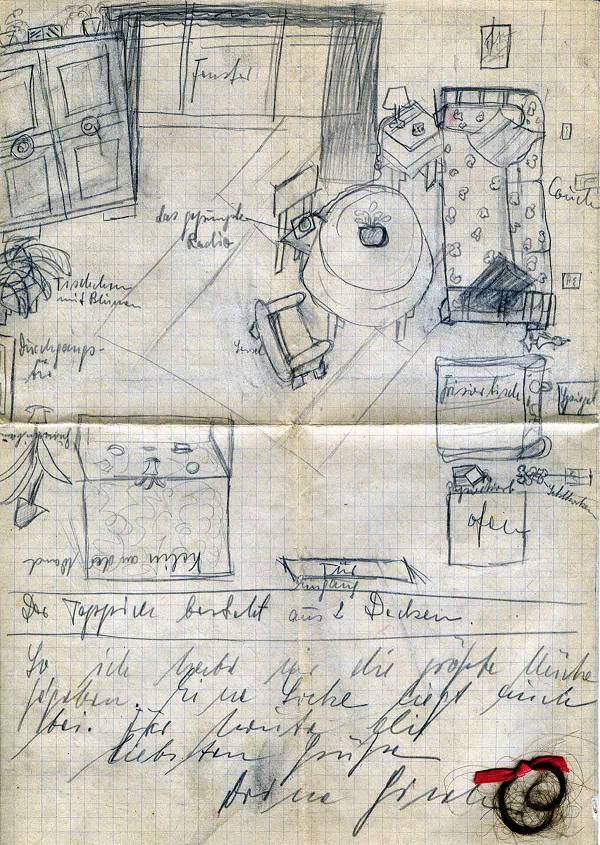 Fenster
Couch
das gesprungene
Radio
Tischchen
mit Blumen
Durchgangs-
tür
Sessel
Frisiertisch
Spiegel
Ofen
an der Wand
Tür
Eingang
Der Teppich besteht aus 2 Decken.
So ich habe mir die größte Mühe
gegeben. Eine Locke liegt auch
bei. Für heute
liebsten Grüße
Deine